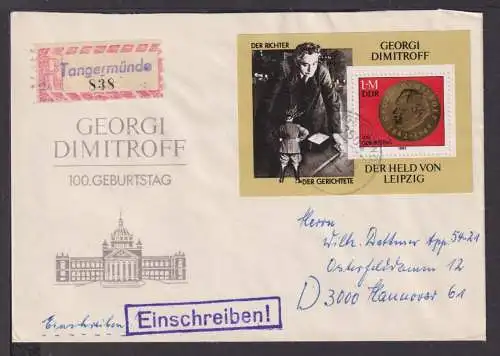 Tangermünde
838
GEORGI
DIMITROFF
100. GEBURTSTAG
DER RICHTER
GEORGI
DIMITROFF
1M
DDR
100.
GEBURTSTAG
1982
DER GERICHTETE
DER HELD VON
LEIPZIG
Herrn
Wilh. Dettmer App. 54-21
Osterfelddamm 12
D 3000 Hannover 61
Einschreiben
Einschreiben!